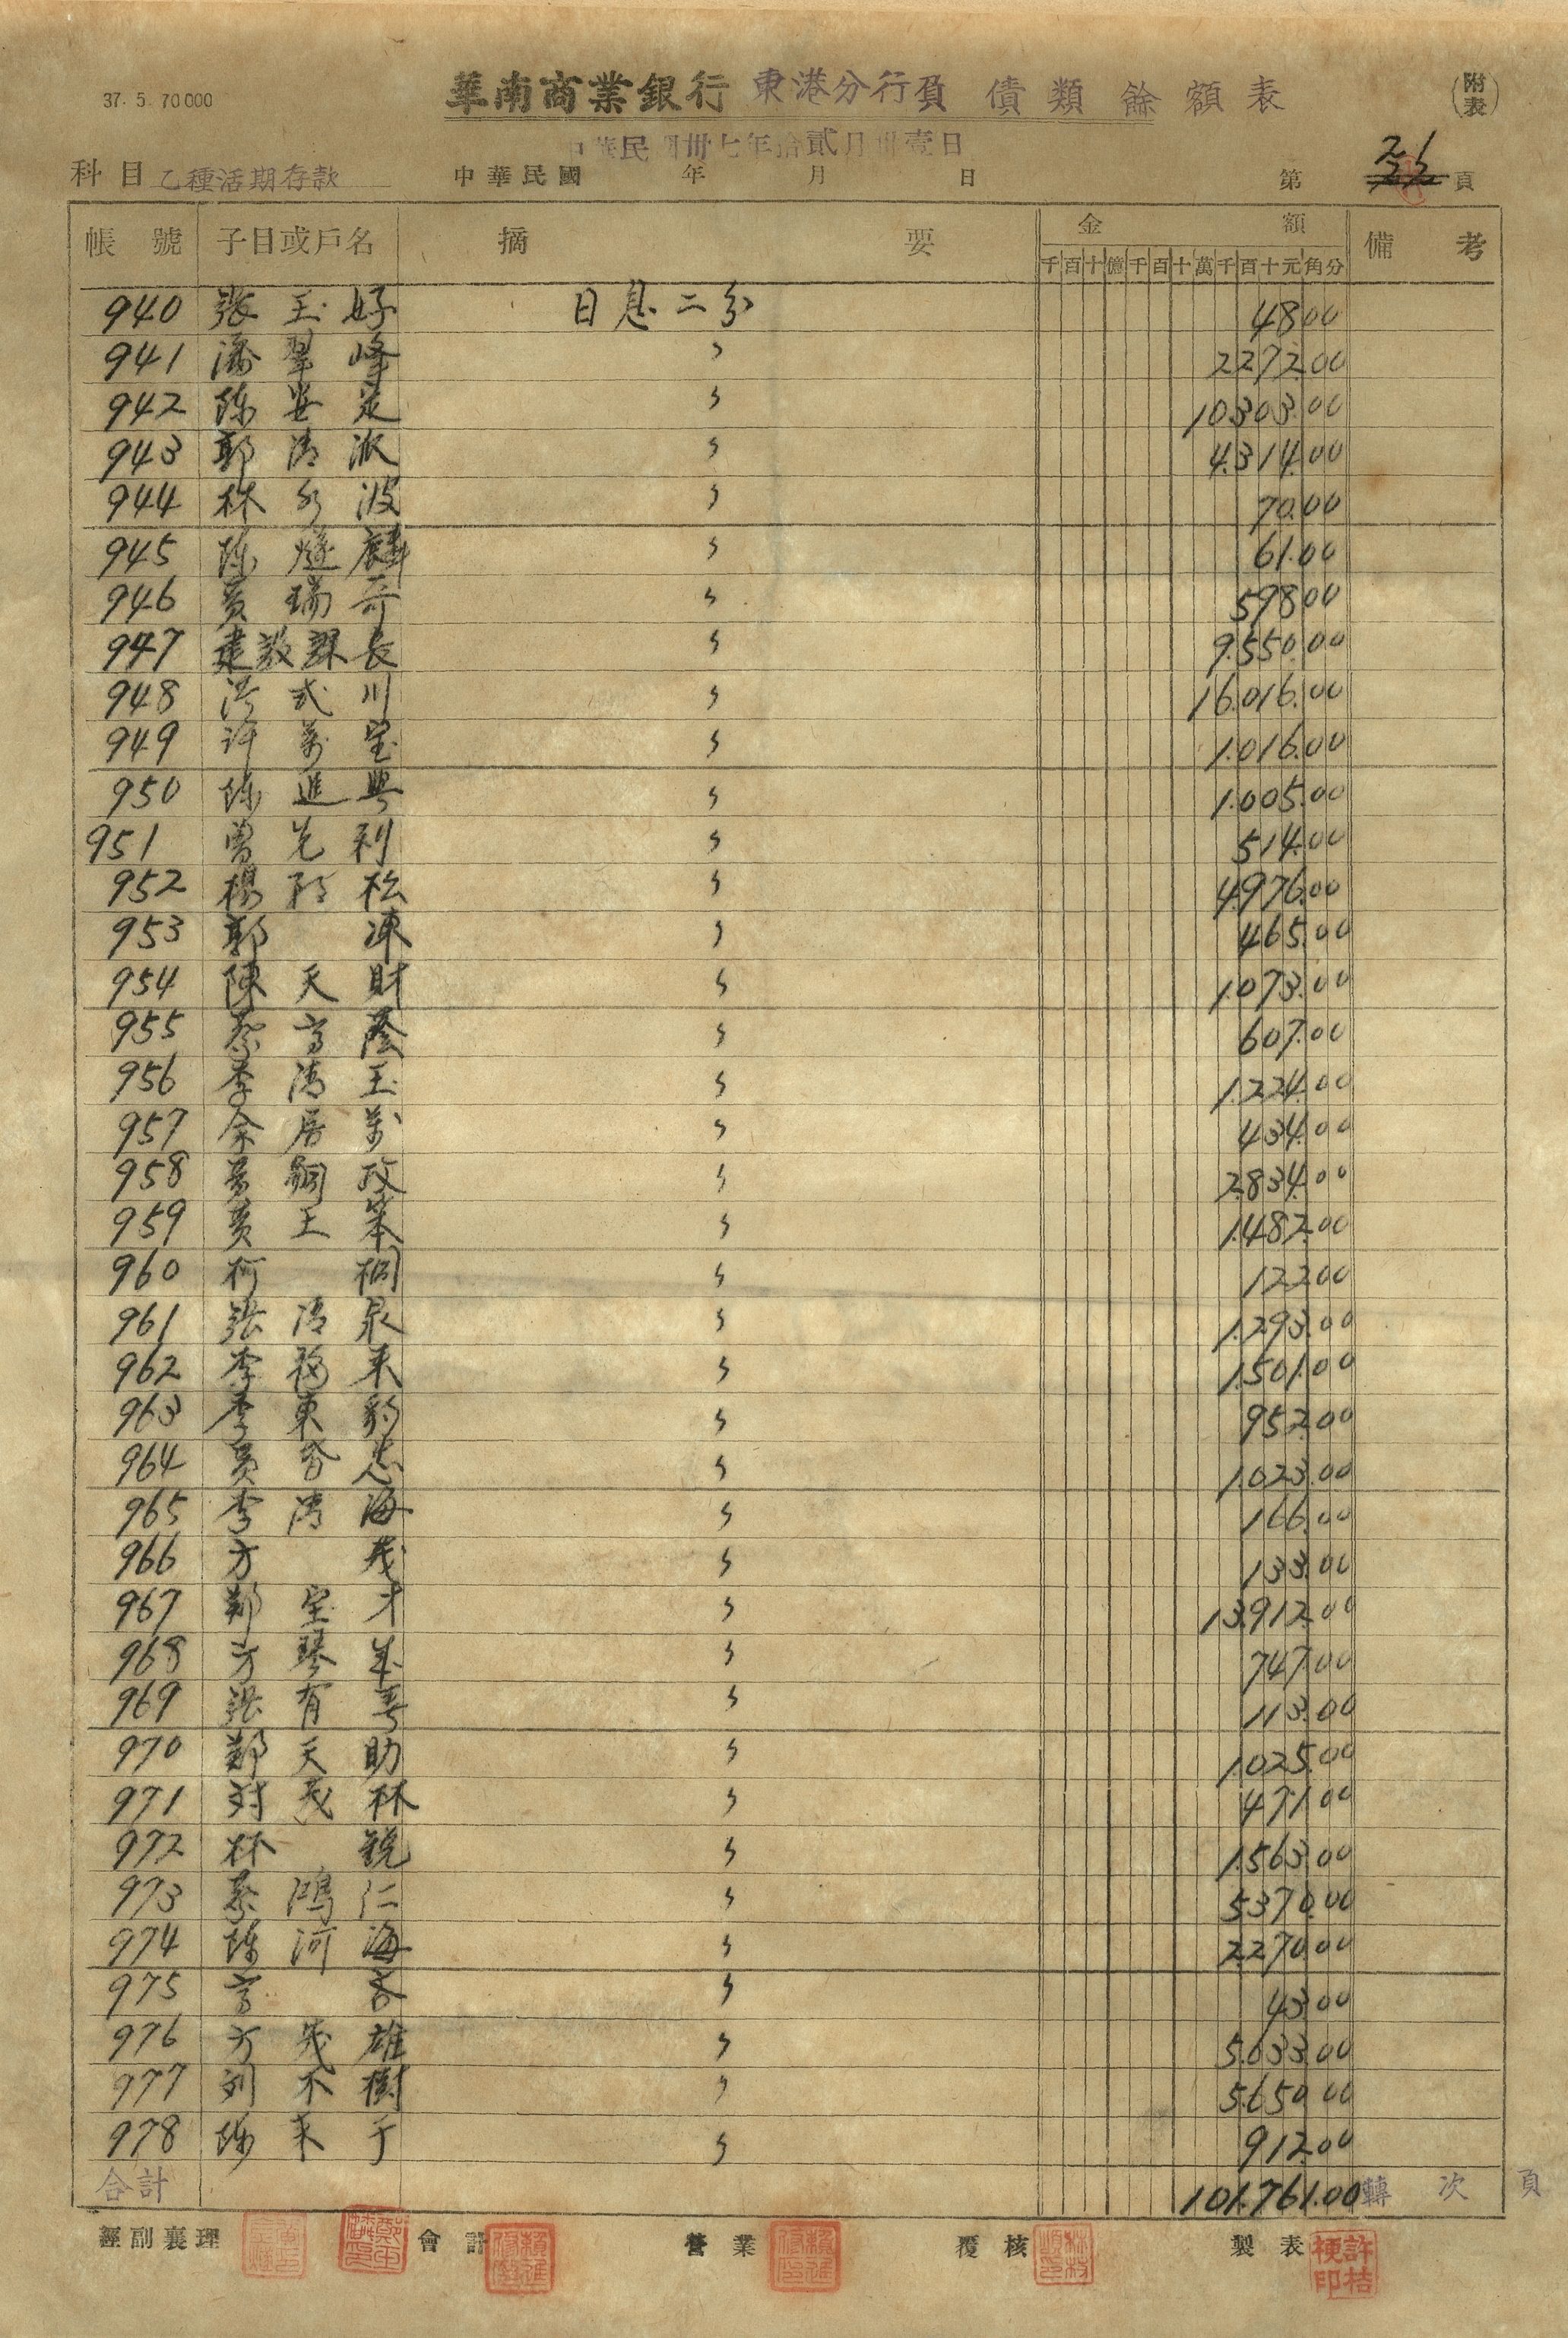 37. 5. 70000
華南商業銀行 東港分行負債類餘額表 (附表)
中華民國卅七年拾貳月卅壹日
科目 乙種活期存款 中華民國 年 月 日 第 頁
帳號 子目或戶名 摘要 金額 備考
千百十億千百十萬千百十元角分
940 張玉好 日息二分 48.00
941 潘翠峰 〃 2272.00
942 陳安定 〃 10303.00
943 郭清派 〃 4.314.00
944 林水波 〃 70.00
945 陳燧麟 〃 61.00
946 黃瑞奇 〃 598.00
947 建設課長 〃 9.550.00
948 洪式川 〃 16.016.00
949 許萬宝 〃 1.016.00
950 陳進興 〃 1.005.00
951 曾先利 〃 514.00
952 楊 松 〃 4.976.00
953 郭凍 〃 465.00
954 陳天財 〃 1.073.00
955 蔡高蔭 〃 607.00
956 李清玉 〃 1.224.00
957 余居萬 〃 434.00
958 黃嗣政 〃 2.834.00
959 黃王笨 〃 1.482.00
960 柯桐 〃 122.00
961 張清泉 〃 1.293.00
962 李福来 〃 1.501.00
963 李東豹 〃 952.00
964 黃忠 〃 1.023.00
965 李清海 〃 166.00
966 方茂 〃 133.00
967 鄭宝才 〃 13.912.00
968 方琴 〃 747.00
969 張有 〃 113.00
970 鄭天助 〃 1.025.00
971 対茂林 〃 471.00
972 林銳 〃 1.563.00
973 蔡鴻仁 〃 5370.00
974 陳河海 〃 2.270.00
975 高 〃 43.00
976 方茂雄 〃 5.633.00
977 刘不樹 〃 5.650.00
978 陳来于 〃 912.00
合計 101.761.00 轉次頁
經副襄理 會計 營業 覆核 製表
許桔梗印